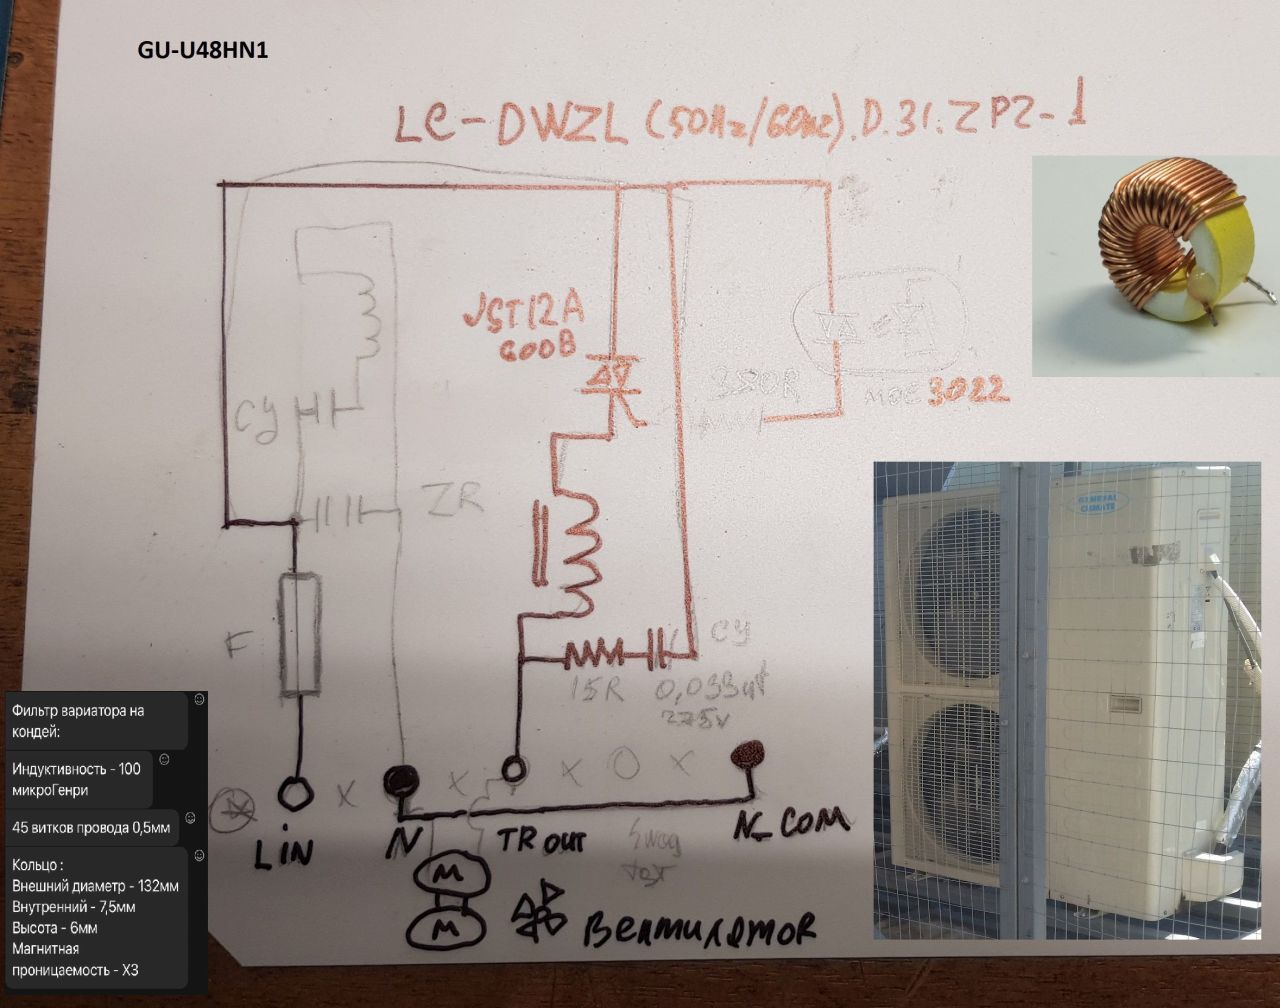 GU-U48HN1
LC-DWZL (50Hz/60Hz).D.31.ZPZ-1
JST12A
600В
330R
MOC3022
CY
ZR
F
CY
15R 0,033uf
275v
L iN
N
TR OUT
N_COM
M
M
Вентилятор
GENERAL
CLIMATE
Фильтр вариатора на
кондей:
Индуктивность - 100
микроГенри
45 витков провода 0,5мм
Кольцо :
Внешний диаметр - 132мм
Внутренний - 7,5мм
Высота - 6мм
Магнитная
проницаемость - X3